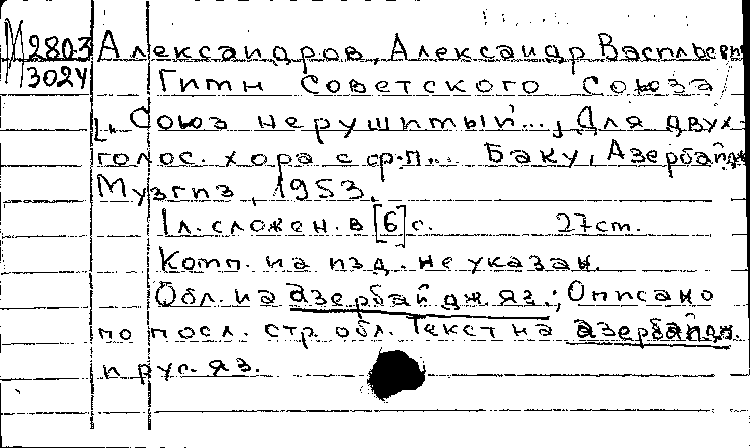 М2803 Александров, Александр Васильевич
3024 Гимн Советского Союза
[„Союз нерушимый..., Для двух-
голос. хора с ф.-п... Баку, Азербайдж.
Музгиз, 1953.
1л. сложен. в [6] с. 27 см.
Комп. на изд. не указан.
Обл. на азербайдж. яз.; Описано
по посл. стр. обл. Текст на азербайдж.
и рус. яз.